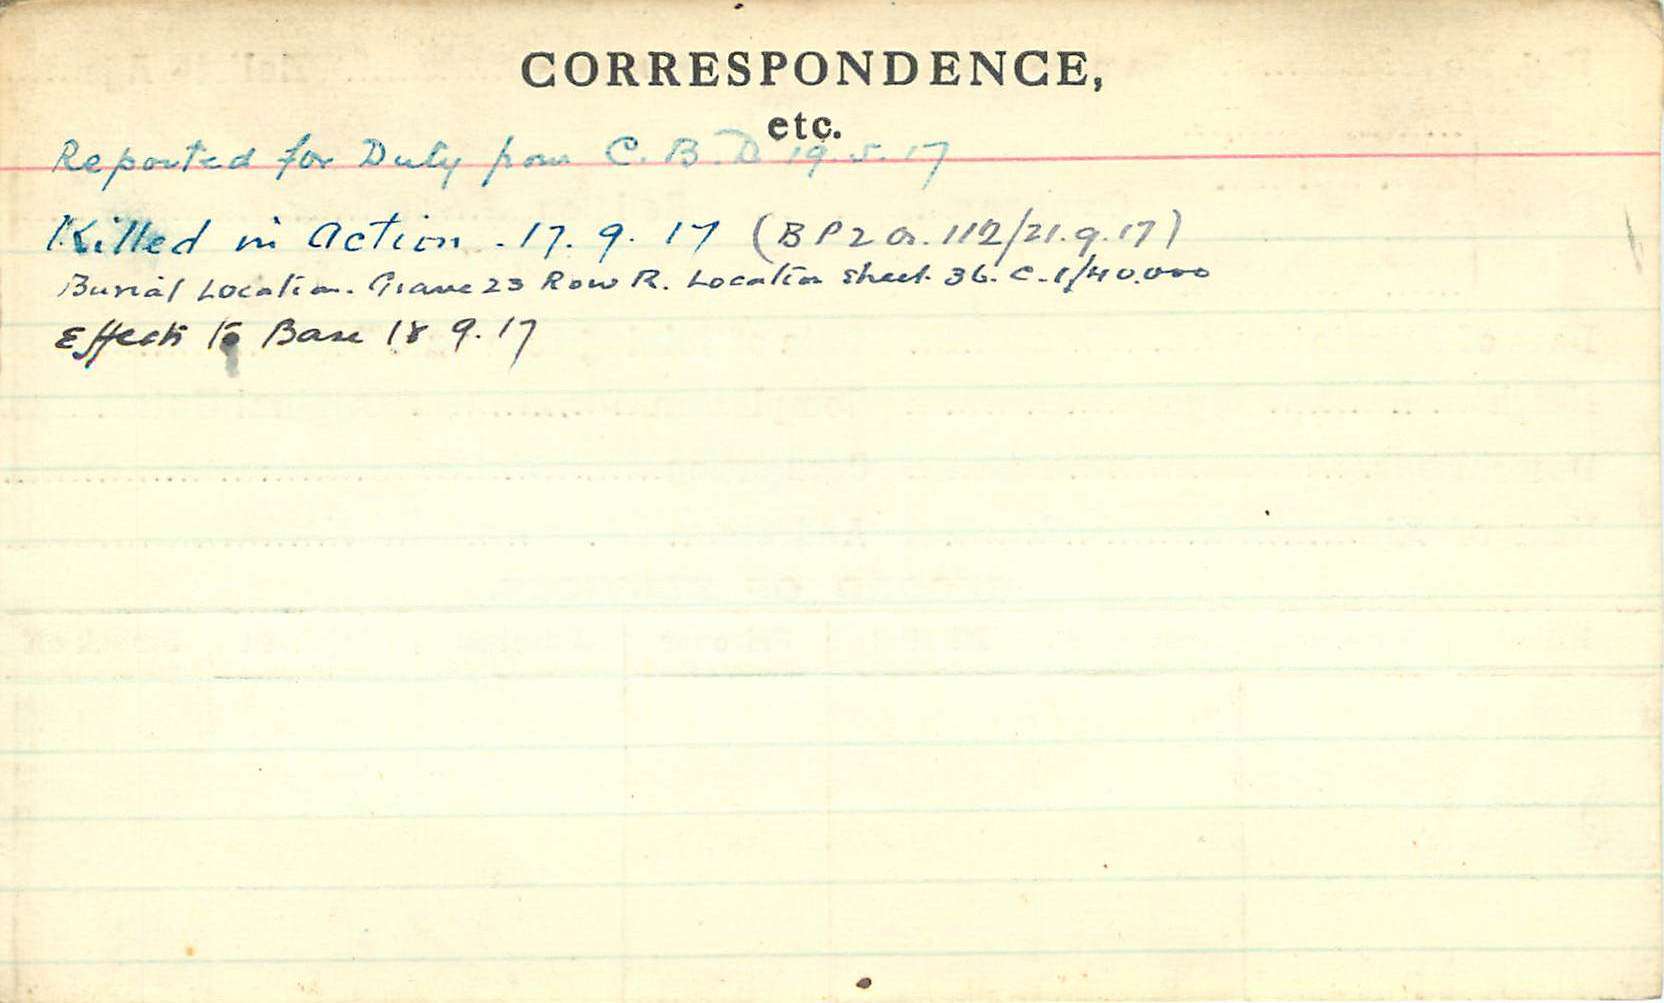 CORRESPONDENCE,
etc.
Reported for Duty from C.B.D 19.5.17
Killed in Action - 17.9.17 (BP2 O. 112/21.9.17)
Burial Location. Grave 23 Row R. Location Sheet 36.C.1/40.000
Effects to Base 18 9.17